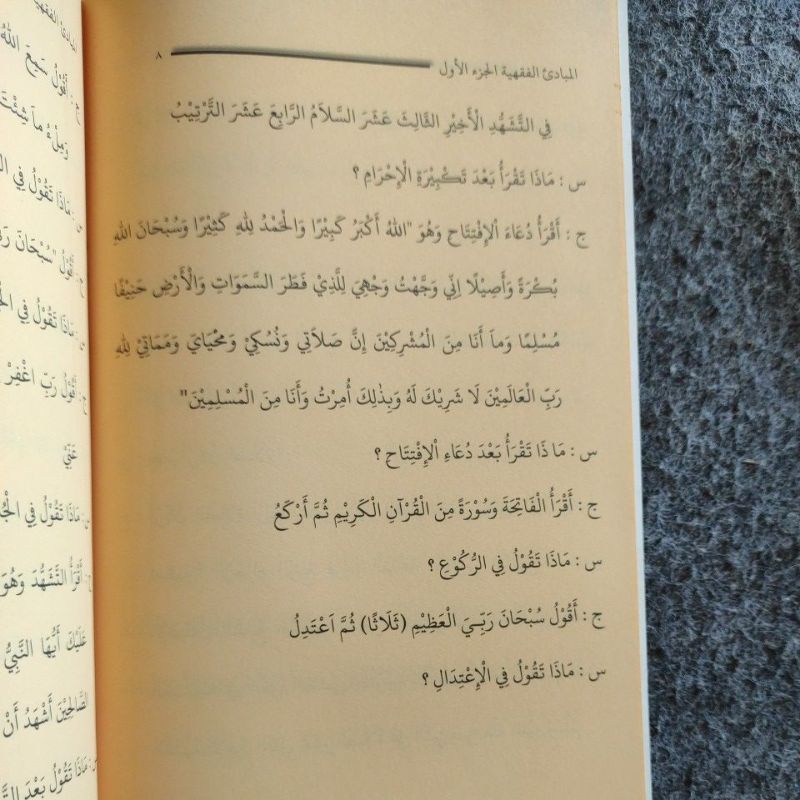 المبادئ الفقهية الجزء الأول ٨
فِي التَّشَهُّدِ الْأَخِيْرِ الثَّالِثَ عَشَرَ السَّلاَمُ الرَّابِعَ عَشَرَ التَّرْتِيْبُ
س : مَاذَا تَقْرَأُ بَعْدَ تَكْبِيْرَةِ الْإِحْرَامِ ؟
ج : أَقْرَأُ دُعَاءَ الْإِفْتِتَاحِ وَهُوَ "اللهُ أَكْبَرُ كَبِيْرًا وَالْحَمْدُ لِلهِ كَثِيْرًا وَسُبْحَانَ اللهِ
بُكْرَةً وَأَصِيْلًا اِنِّي وَجَّهْتُ وَجْهِيَ لِلَّذِيْ فَطَرَ السَّمَوَاتِ وَالْأَرْضِ حَنِيْفًا
مُسْلِمًا وَمَآ أَنَا مِنَ الْمُشْرِكِيْنَ إِنَّ صَلاَتِي وَنُسُكِيْ وَمَحْيَايَ وَمَمَاتِيْ لِلهِ
رَبِّ الْعَالَمِيْنَ لَا شَرِيْكَ لَهُ وَبِذٰلِكَ أُمِرْتُ وَأَنَا مِنَ الْمُسْلِمِيْنَ"
س : مَا ذَا تَقْرَأُ بَعْدَ دُعَاءِ الْإِفْتِتَاحِ ؟
ج : أَقْرَأُ الْفَاتِحَةَ وَسُوْرَةً مِنَ الْقُرْآنِ الْكَرِيْمِ ثُمَّ أَرْكَعُ
س : مَاذَا تَقُوْلُ فِي الرُّكُوْعِ ؟
ج : أَقُوْلُ سُبْحَانَ رَبِّيَ الْعَظِيْمِ (ثَلَاثًا) ثُمَّ اَعْتَدِلُ
س : مَاذَا تَقُوْلُ فِي الْإِعْتِدَالِ ؟
ج : أَقُوْلُ سَمِعَ اللهُ
وَمِلْءُ مَآ شِئْتَ
س : مَاذَا تَقُوْلُ فِي
ج : أَقُوْلُ "سُبْحَانَ
س : مَاذَا تَقُوْلُ فِي
ج : أَقُوْلُ رَبِّ اغْفِرْ
عَنِّي
س : مَاذَا تَقُوْلُ فِي
ج : أَقْرَأُ التَّشَهُّدَ وَهُوَ
عَلَيْكَ أَيُّهَا النَّبِيُّ
الصَّالِحِيْنَ أَشْهَدُ أَنْ
س : مَاذَا تَقُوْلُ بَعْدَ